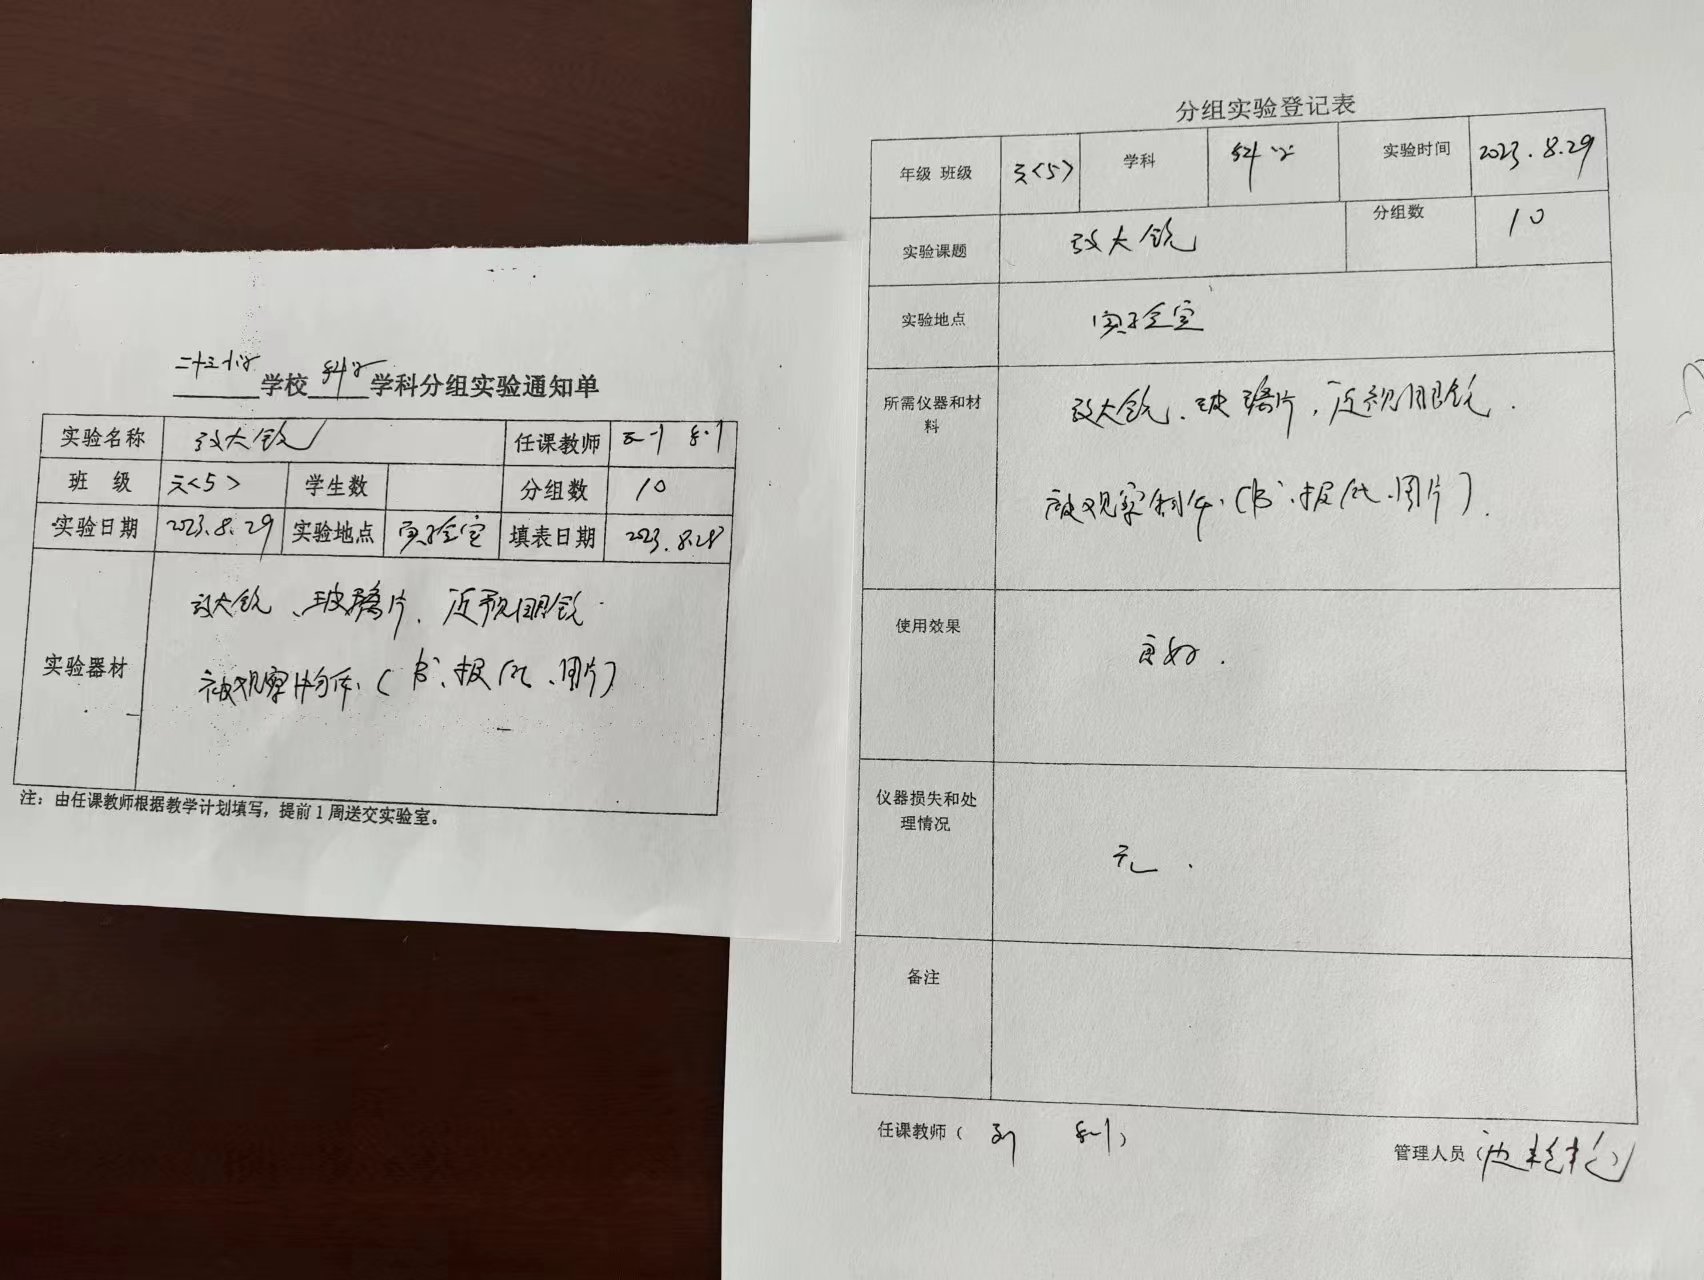 学校 科学 学科分组实验通知单
实验名称 放大镜 任课教师
班 级 <5> 学生数 分组数 10
实验日期 2023.8.29 实验地点 实验室 填表日期 2023.8.28
实验器材
放大镜、玻璃片、近视眼镜.
被观察物体、(书、报纸、图片)
注：由任课教师根据教学计划填写，提前1周送交实验室。
分组实验登记表
年级 班级 <5> 学科 科学 实验时间 2023.8.29
实验课题 放大镜 分组数 10
实验地点 实验室
所需仪器和材料
放大镜、玻璃片、近视眼镜.
被观察物体、(书、报纸、图片).
使用效果 良好.
仪器损失和处理情况 无.
备注
任课教师（ ）
管理人员（ ）